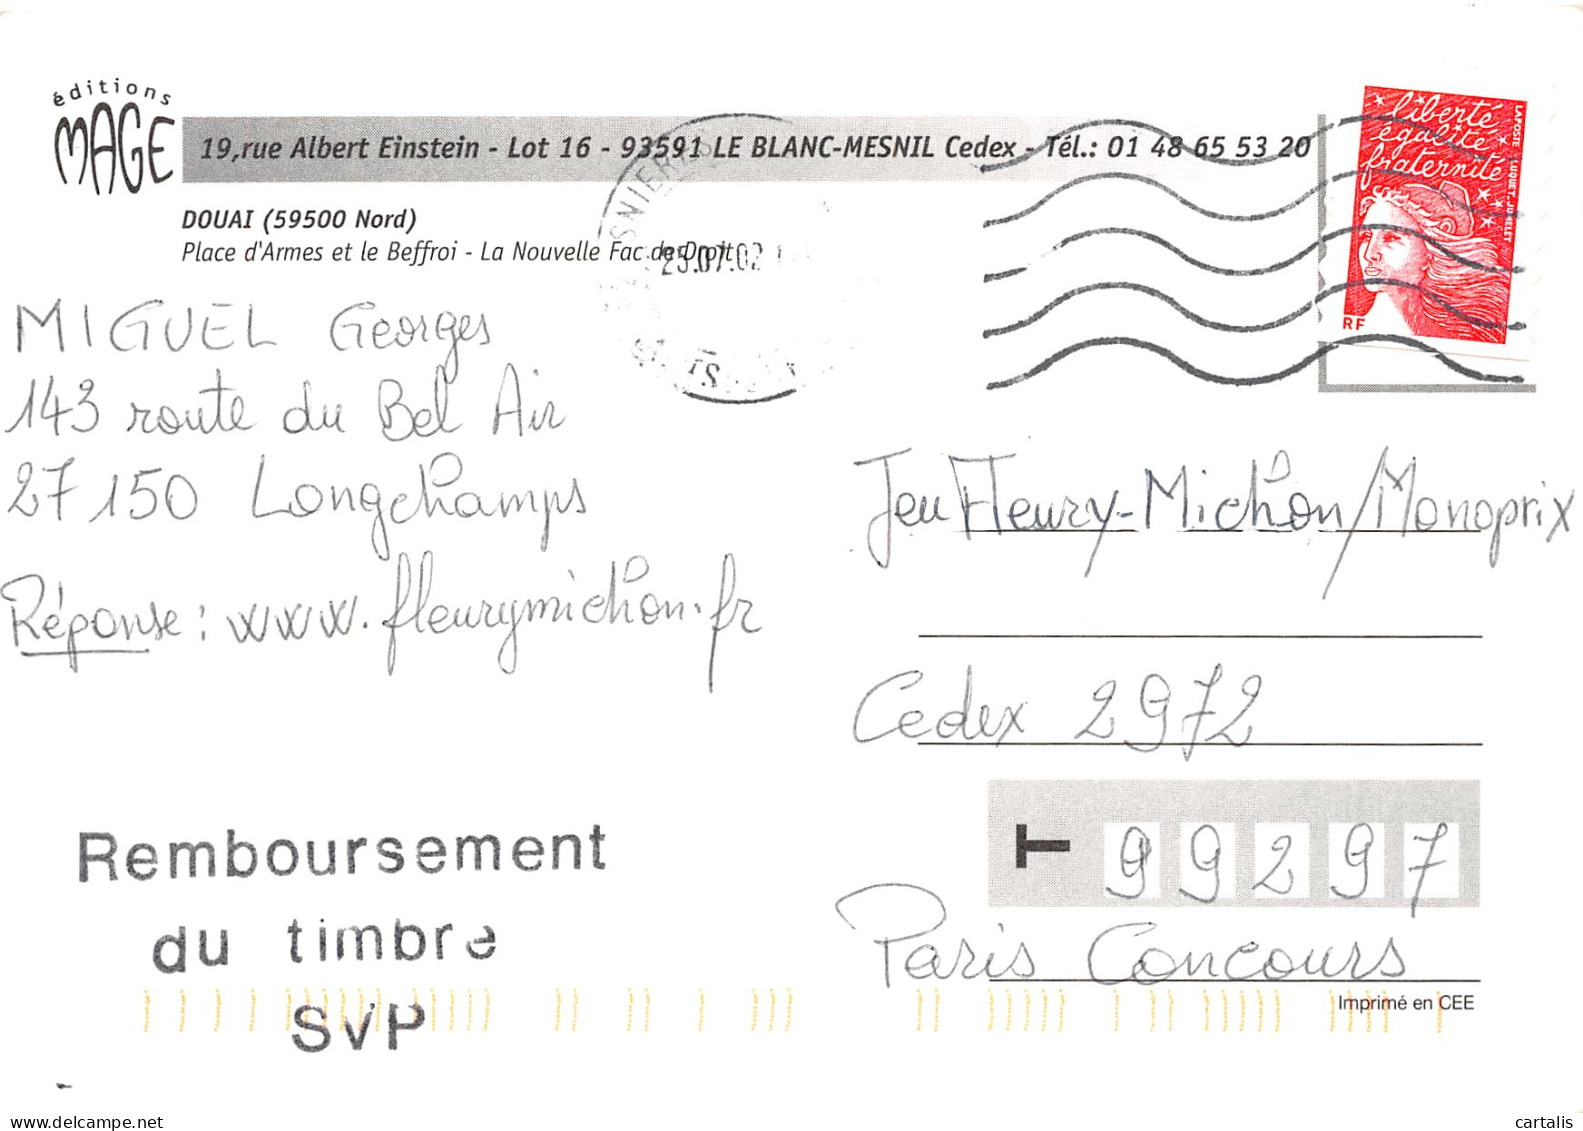 éditions
MAGE
19,rue Albert Einstein - Lot 16 - 93591 LE BLANC-MESNIL Cedex - Tél.: 01 48 65 53 20
DOUAI (59500 Nord)
Place d'Armes et le Beffroi - La Nouvelle Fac de Droit
liberté
égalité
fraternité
LA POSTE LUQUET-JUMELET
RF
07.02
MIGUEL Georges
143 route du Bel Air
27150 Longchamps
Réponse : www.fleurymichon.fr
Jeu Fleury-Michon/Monoprix
Cedex 2972
T 99297
Paris Concours
Remboursement
du timbre
SVP
Imprimé en CEE
My-piCture.co.uk
cartalis